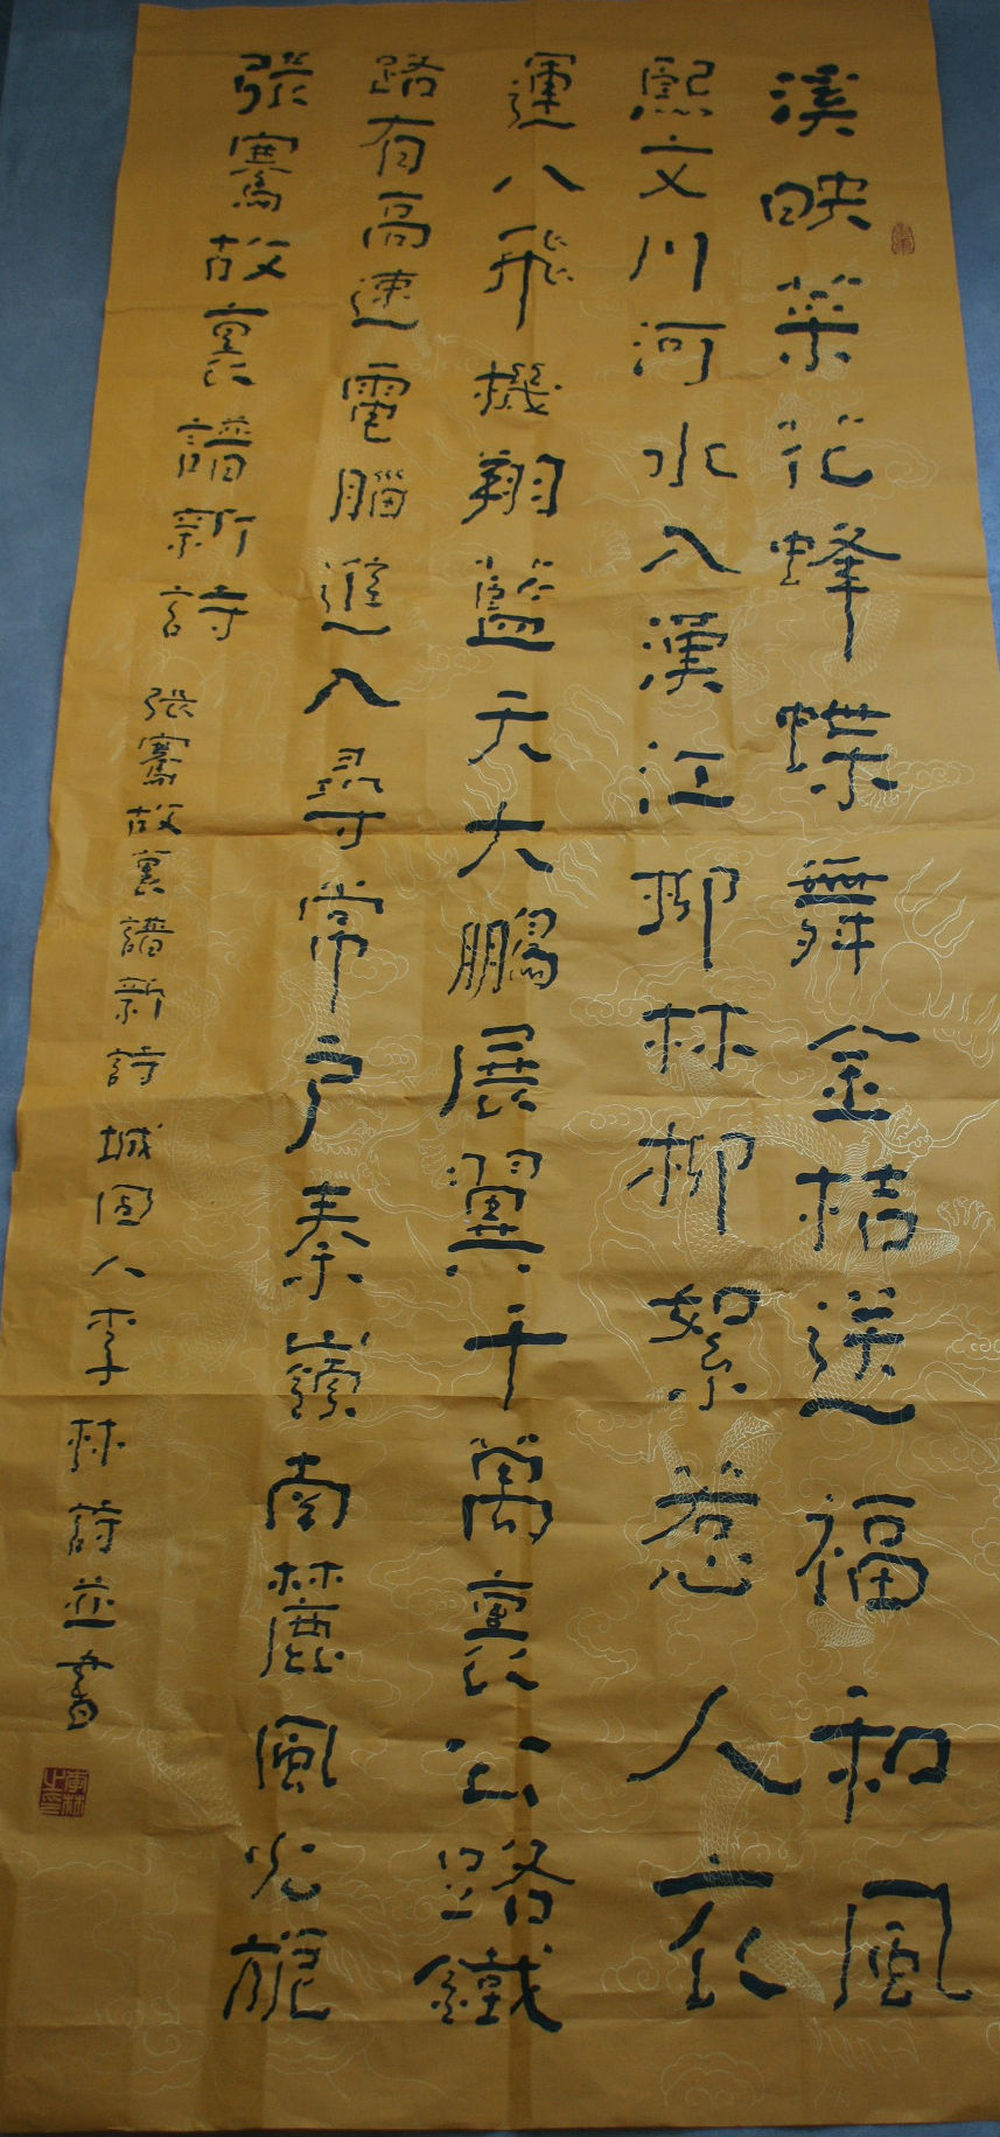 溪映菜花蜂蝶舞金桔送福和風
熙文川河水入漢江柳林柳絮惹人衣
運八飛機翔藍天大鵬展翼千萬裏公路鐵
路有高速電腦進入尋常户秦嶺南麓風光旎
張騫故裏譜新詩 張騫故裏譜新詩 城固人李林詩並書
李林之印